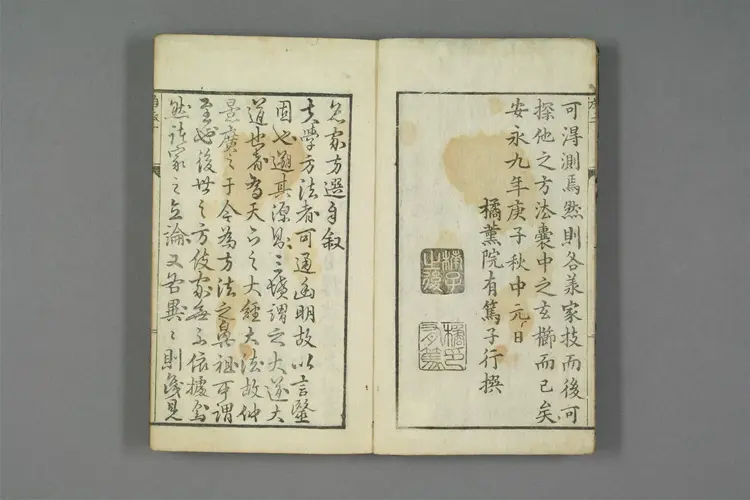 可得測焉然則各善家技而後可
探他之方法嚢中之玄櫛而已矣
安永九年庚子秋中元日
橘薫院有篤子行撰
名家方選自叙
夫學方法者可通幽明故以言毉
固也遡其源昉三墳謂之大遂大
道也者為天下之大經大法故仲
景廣之于今為方法之鼻祖可謂
至也後世之方伎家無不依據焉
然諸家之立論又各異〻則淺見